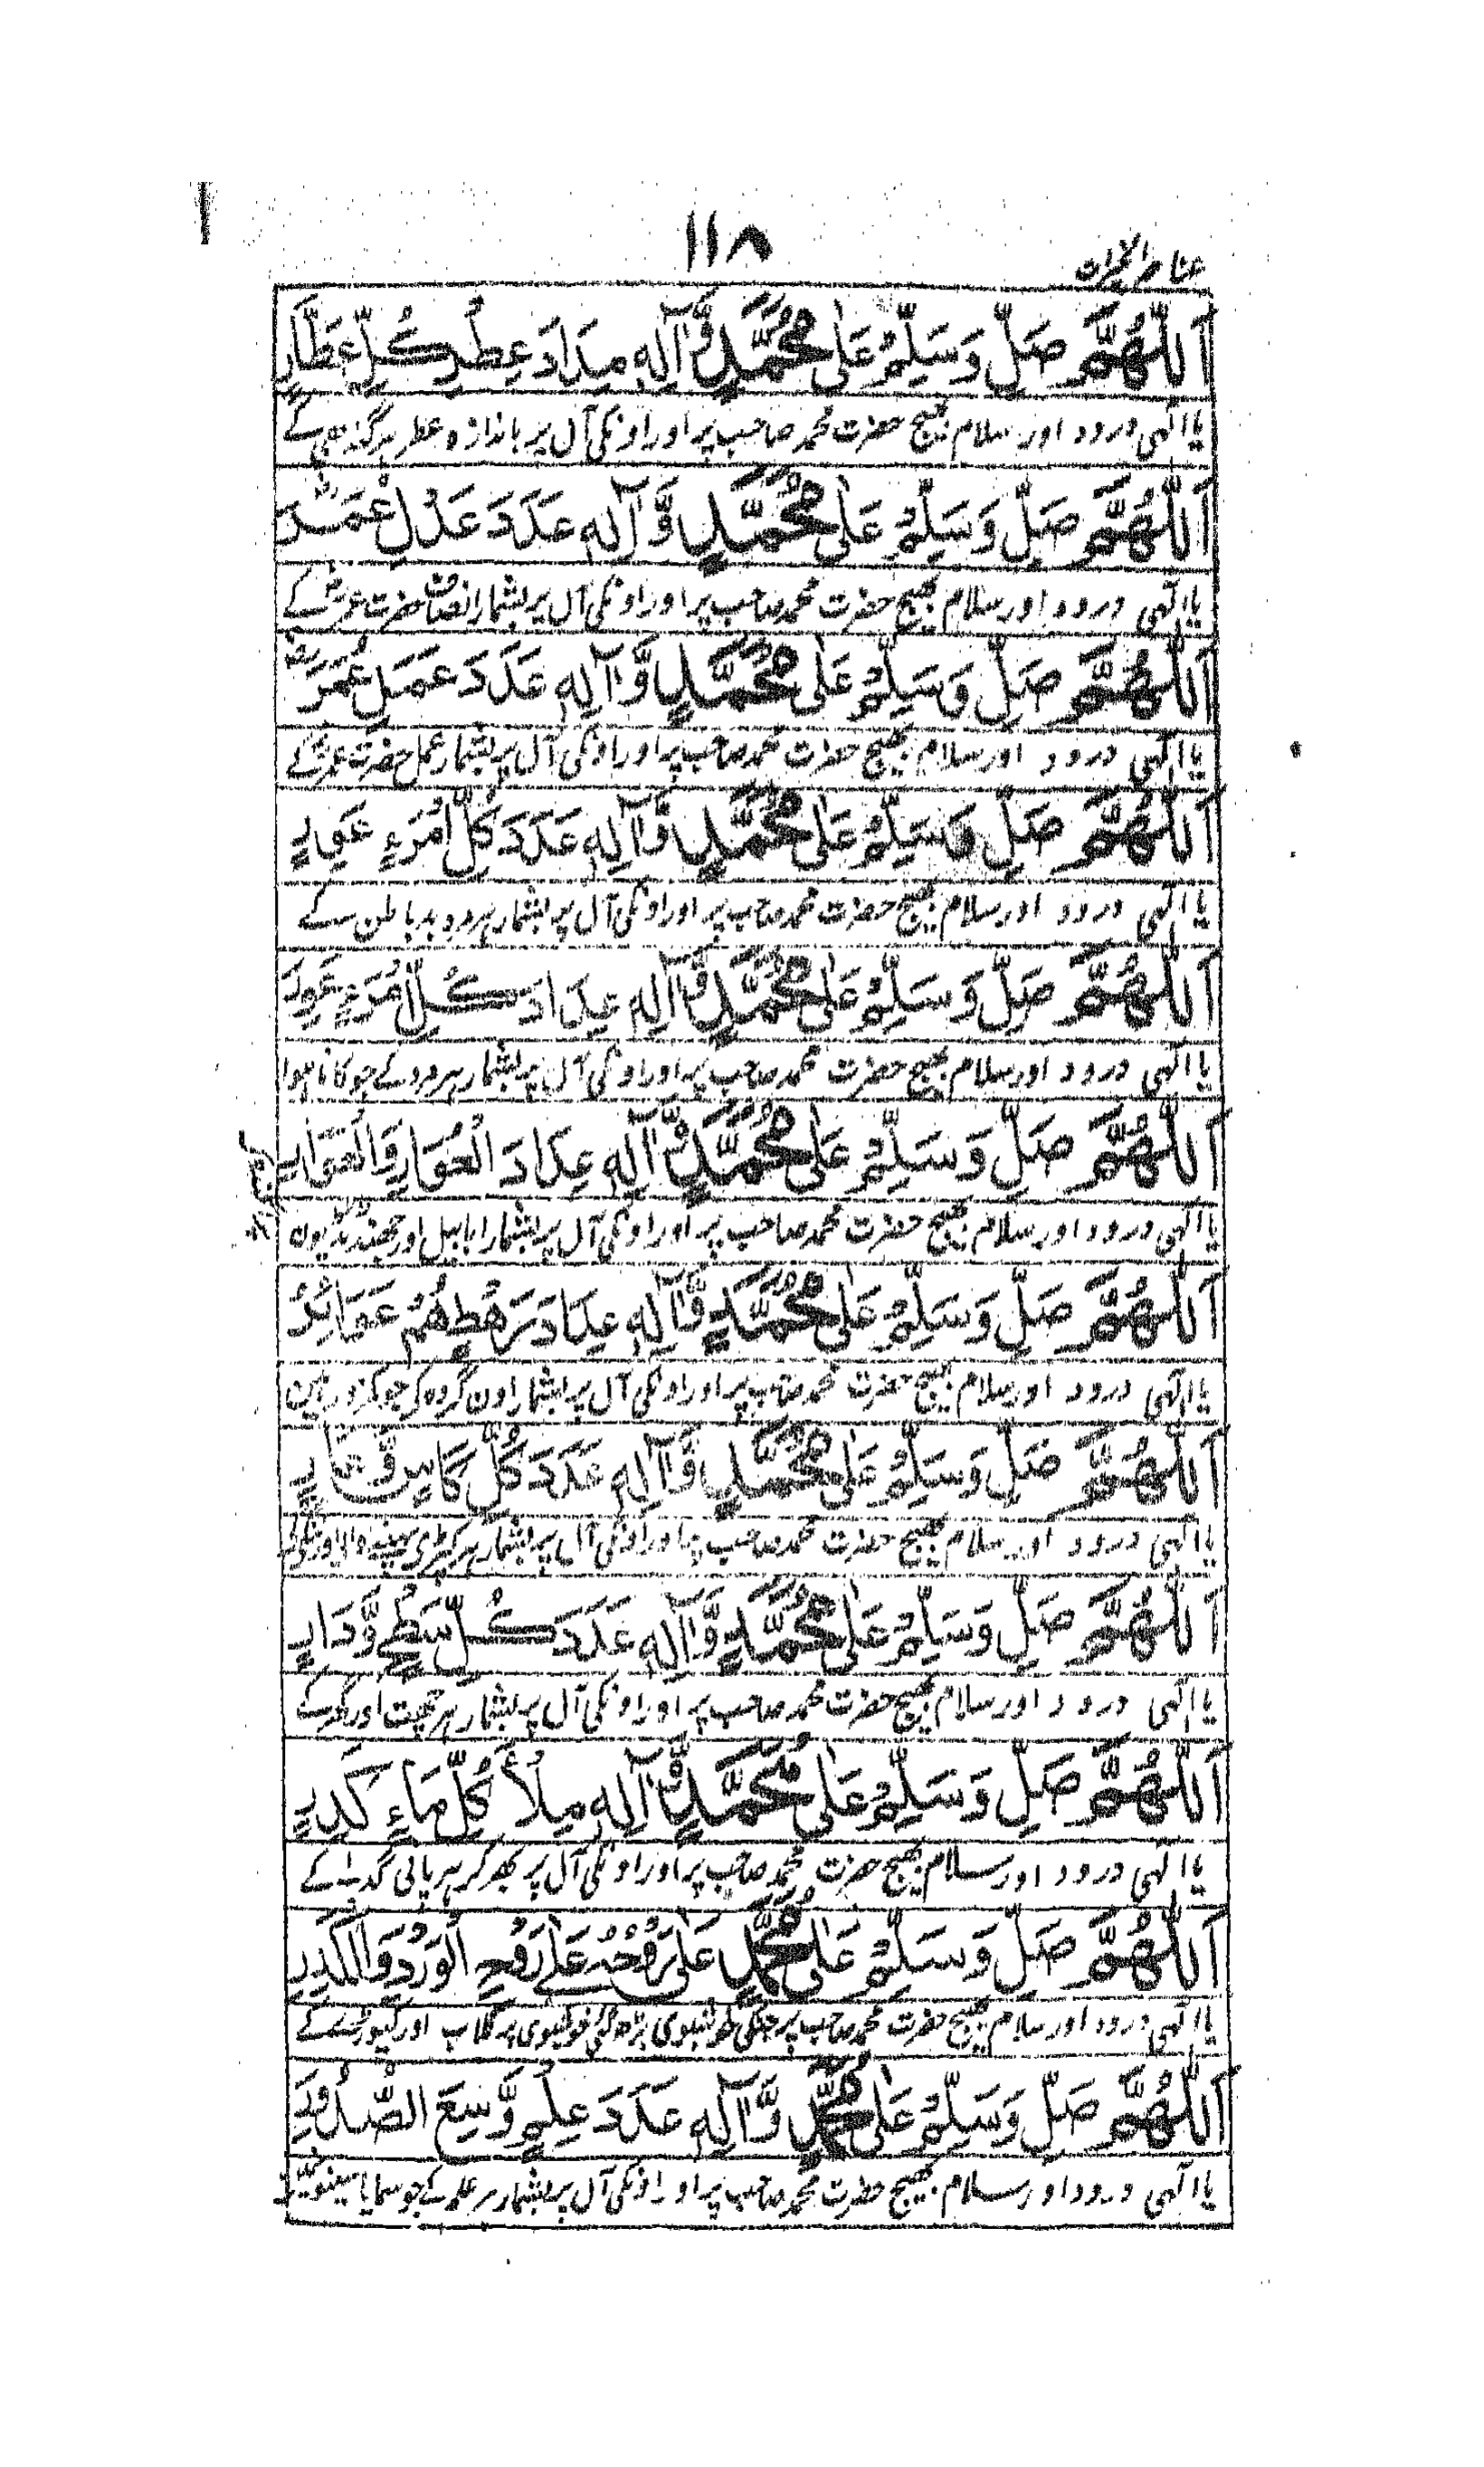 ١١٨
عناصر الخیرات
اَللّٰهُمَّ صَلِّ وَسَلِّمْ عَلٰى مُحَمَّدٍ وَّآلِهٖ مِدَادَ عِطْرِ كُلِّ عَطَّارٍ
یا الٰہی درود اور سلام بھیج حضرت محمد صاحب پر اور اونکی آل پر باندازہ عطر ہر گندھی کے
اَللّٰهُمَّ صَلِّ وَسَلِّمْ عَلٰى مُحَمَّدٍ وَّآلِهٖ عَدَدَ عَدْلِ عُمَرَ
یا الٰہی درود اور سلام بھیج حضرت محمد صاحب پر اور اونکی آل پر بشمار انصاف حضرت عمرؓ کے
اَللّٰهُمَّ صَلِّ وَسَلِّمْ عَلٰى مُحَمَّدٍ وَّآلِهٖ عَدَدَ عَمَلِ عُمَرَ
یا الٰہی درود اور سلام بھیج حضرت محمد صاحب پر اور اونکی آل پر بشمار عمل حضرت عمرؓ کے
اَللّٰهُمَّ صَلِّ وَسَلِّمْ عَلٰى مُحَمَّدٍ وَّآلِهٖ عَدَدَ كُلِّ امْرَءٍ
یا الٰہی درود اور سلام بھیج حضرت محمد صاحب پر اور اونکی آل پر بشمار ہر مرد بد باطن کے
اَللّٰهُمَّ صَلِّ وَسَلِّمْ عَلٰى مُحَمَّدٍ وَّآلِهٖ عِدَادَ كُلِّ امْرَءٍ عَوِرَ
یا الٰہی درود اور سلام بھیج حضرت محمد صاحب پر اور اونکی آل پر بشمار ہر مرد کے جو کانا ہوا
اَللّٰهُمَّ صَلِّ وَسَلِّمْ عَلٰى مُحَمَّدٍ وَّآلِهٖ عِدَادَ الْعُوَّارِ وَالْعَوَائِرِ
یا الٰہی درود اور سلام بھیج حضرت محمد صاحب پر اور اونکی آل پر بشمار ابابیل اور جھنڈ ٹڈیون
اَللّٰهُمَّ صَلِّ وَسَلِّمْ عَلٰى مُحَمَّدٍ وَّآلِهٖ عِدَادَ رَهْطٍ هُمْ عَوَائِرُ
یا الٰہی درود اور سلام بھیج حضرت محمد صاحب پر اور اونکی آل پر بشمار اون گروہ کی جو کمزور ہین
اَللّٰهُمَّ صَلِّ وَسَلِّمْ عَلٰى مُحَمَّدٍ وَّآلِهٖ عَدَدَ كُلِّ كَاسٍ وَّعَارٍ
یا الٰہی درود اور سلام بھیج حضرت محمد صاحب پر اور اونکی آل پر بشمار ہر کپڑی پہننے والی اور
اَللّٰهُمَّ صَلِّ وَسَلِّمْ عَلٰى مُحَمَّدٍ وَّآلِهٖ عَدَدَ كُلِّ سَطْحٍ وَّدَارٍ
یا الٰہی درود اور سلام بھیج حضرت محمد صاحب پر اور اونکی آل پر بشمار ہر چھت اور گھر کے
اَللّٰهُمَّ صَلِّ وَسَلِّمْ عَلٰى مُحَمَّدٍ وَّآلِهٖ مِلْأَ كُلِّ مَاءٍ كَدِرٍ
یا الٰہی درود اور سلام بھیج حضرت محمد صاحب پر اور اونکی آل پر بھر کر ہر پانی گدلے کے
اَللّٰهُمَّ صَلِّ وَسَلِّمْ عَلٰى مُحَمَّدٍ عَلٰى رَوْحُهٗ عَلٰى رَوْحِ الْوَرْدِ وَالْكَدِرِ
یا الٰہی درود اور سلام بھیج حضرت محمد صاحب پر جنکی خوشبوی بڑھ گئی خوشبوی پر گلاب اور کیوڑے کے
اَللّٰهُمَّ صَلِّ وَسَلِّمْ عَلٰى مُحَمَّدٍ وَّآلِهٖ عَدَدَ عِلْمٍ وَّسِعَ الصُّدُوْرَ
یا الٰہی درود اور سلام بھیج حضرت محمد صاحب پر اور اونکی آل پر بشمار ہر علم کے جو سمایا